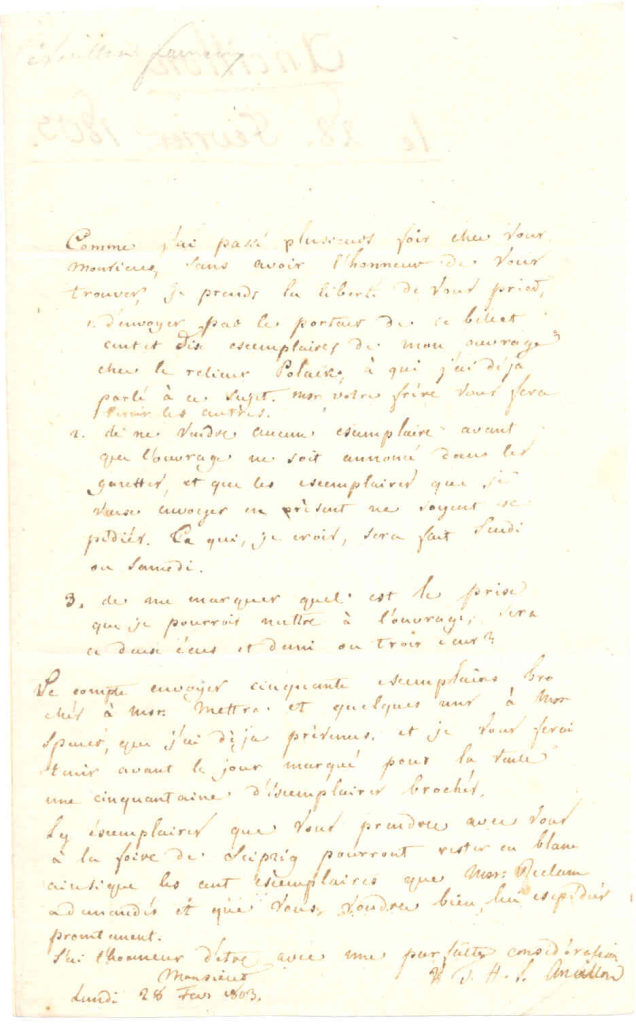 Ancillon
le 28. Février 1803.
Comme j'ai passé plusieurs fois chez vous
Monsieur, sans avoir l'honneur de vous
trouver, je prends la liberté de vous prier,
1. d'envoyer par le porteur de ce billet
cent et dix exemplaires de mon ouvrage
chez le relieur Polack, à qui j'ai déja
parlé à ce sujet. Mor votre frère vous fera
tenir les autres.
2. de ne vendre aucun exemplaire avant
que l'ouvrage ne soit annoncé dans les
gazettes, et que les exemplaires que je
veux envoyer en présent ne soyent ex
pediés. Ce qui, je crois, sera fait
ou Samedi.
3. de me marquer quel est le prise
que je pourrois mettre à l'ouvrage, sera
ce deux écus et demi ou trois écus?
Je compte envoyer cinquante exemplaires bro
chés à Msr. Mettra et quelques uns à Msr
que j'ai déja prévenus. et je vous ferai
tenir avant le jour marqué pour la vente
une cinquantaine d'exemplaires brochés.
Les exemplaires que vous prendrez avec vous
à la foire de Leipzig pourront rester en blanc
ainsique les cent exemplaires que Msr. Reclam
a demandés et que vous voudrez bien lui expédier
promtement.
J'ai l'honneur d'être avec une parfaite considération
Monsieur
V. T. H. S. Ancillon
Lundi 28 Fevr 1803.